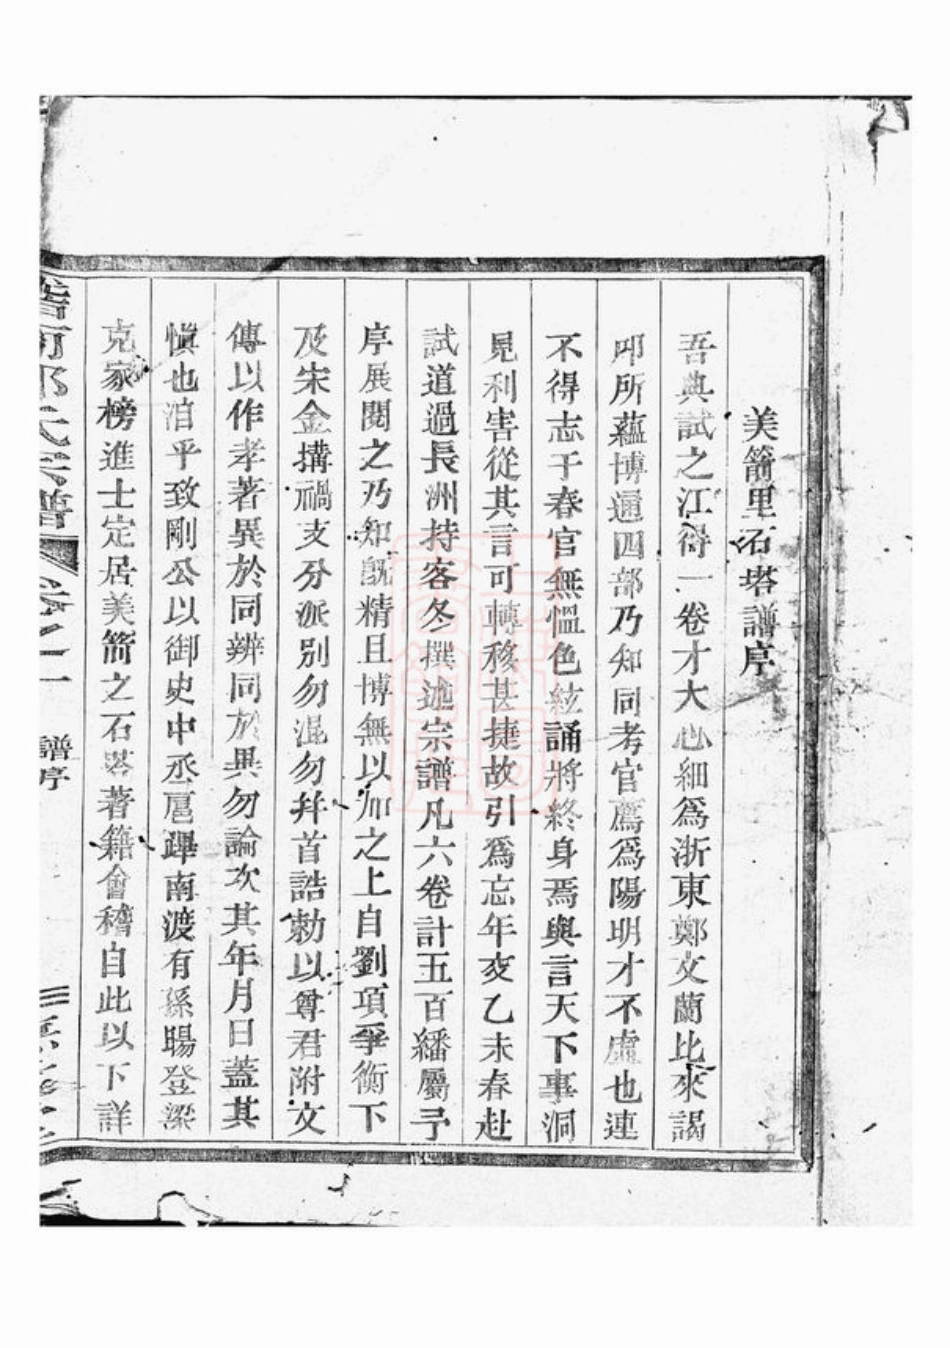 美箭里石塔譜序
吾典試之江得一卷才大心細爲浙東鄭文蘭比來謁
叩所蘊博通四部乃知同考官薦爲陽明才不虛也連
不得志于春官無慍色絃誦將終身焉與言天下事洞
見利害從其言可轉移甚捷故引爲忘年交乙未春赴
試道過長洲持客冬撰述宗譜凡六卷計五百繙屬予
序展閱之乃知既精且博無以加之上自劉項爭衡下
及宋金搆禍支分派別勿混勿并首誥勅以尊君附文
傳以作孝著異於同辨同於異勿論次其年月日蓋其
慎也洎乎致剛公以御史中丞扈蹕南渡有孫暘登梁
克家榜進士定居美箭之石塔著籍會稽自此以下詳
譜序